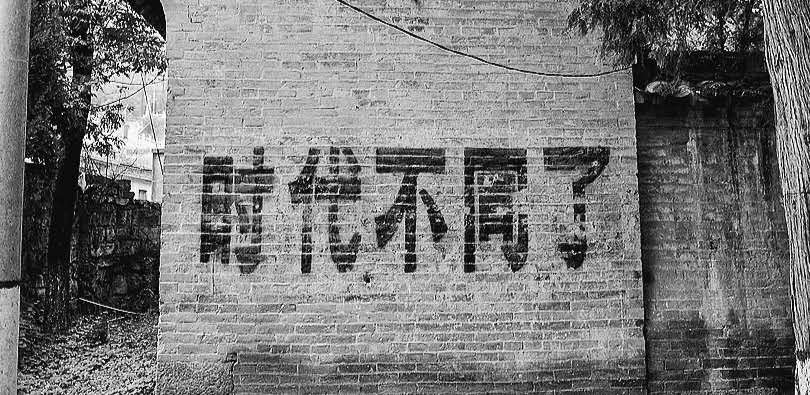 时代不同了